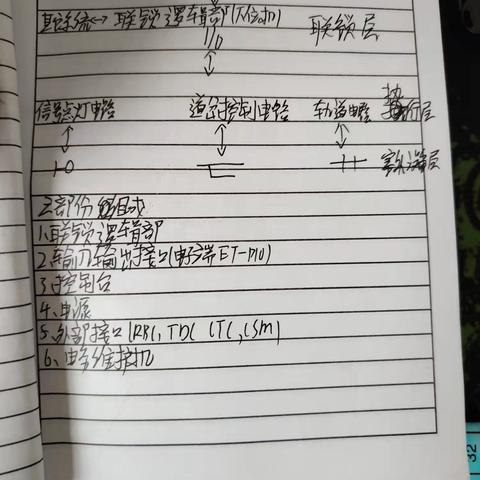 联锁逻辑部(下位机) 联锁层
I/O
信号点灯电路 道岔控制电路 轨道电路 执行层
室外设备层
2.部份组成
1.联锁逻辑部
2.输入输出接口(电子端ET-PIO)
3.控制台
4.电源
5.外部接口(RBC,TDC CTC,CSM)
6.电务维护机
32